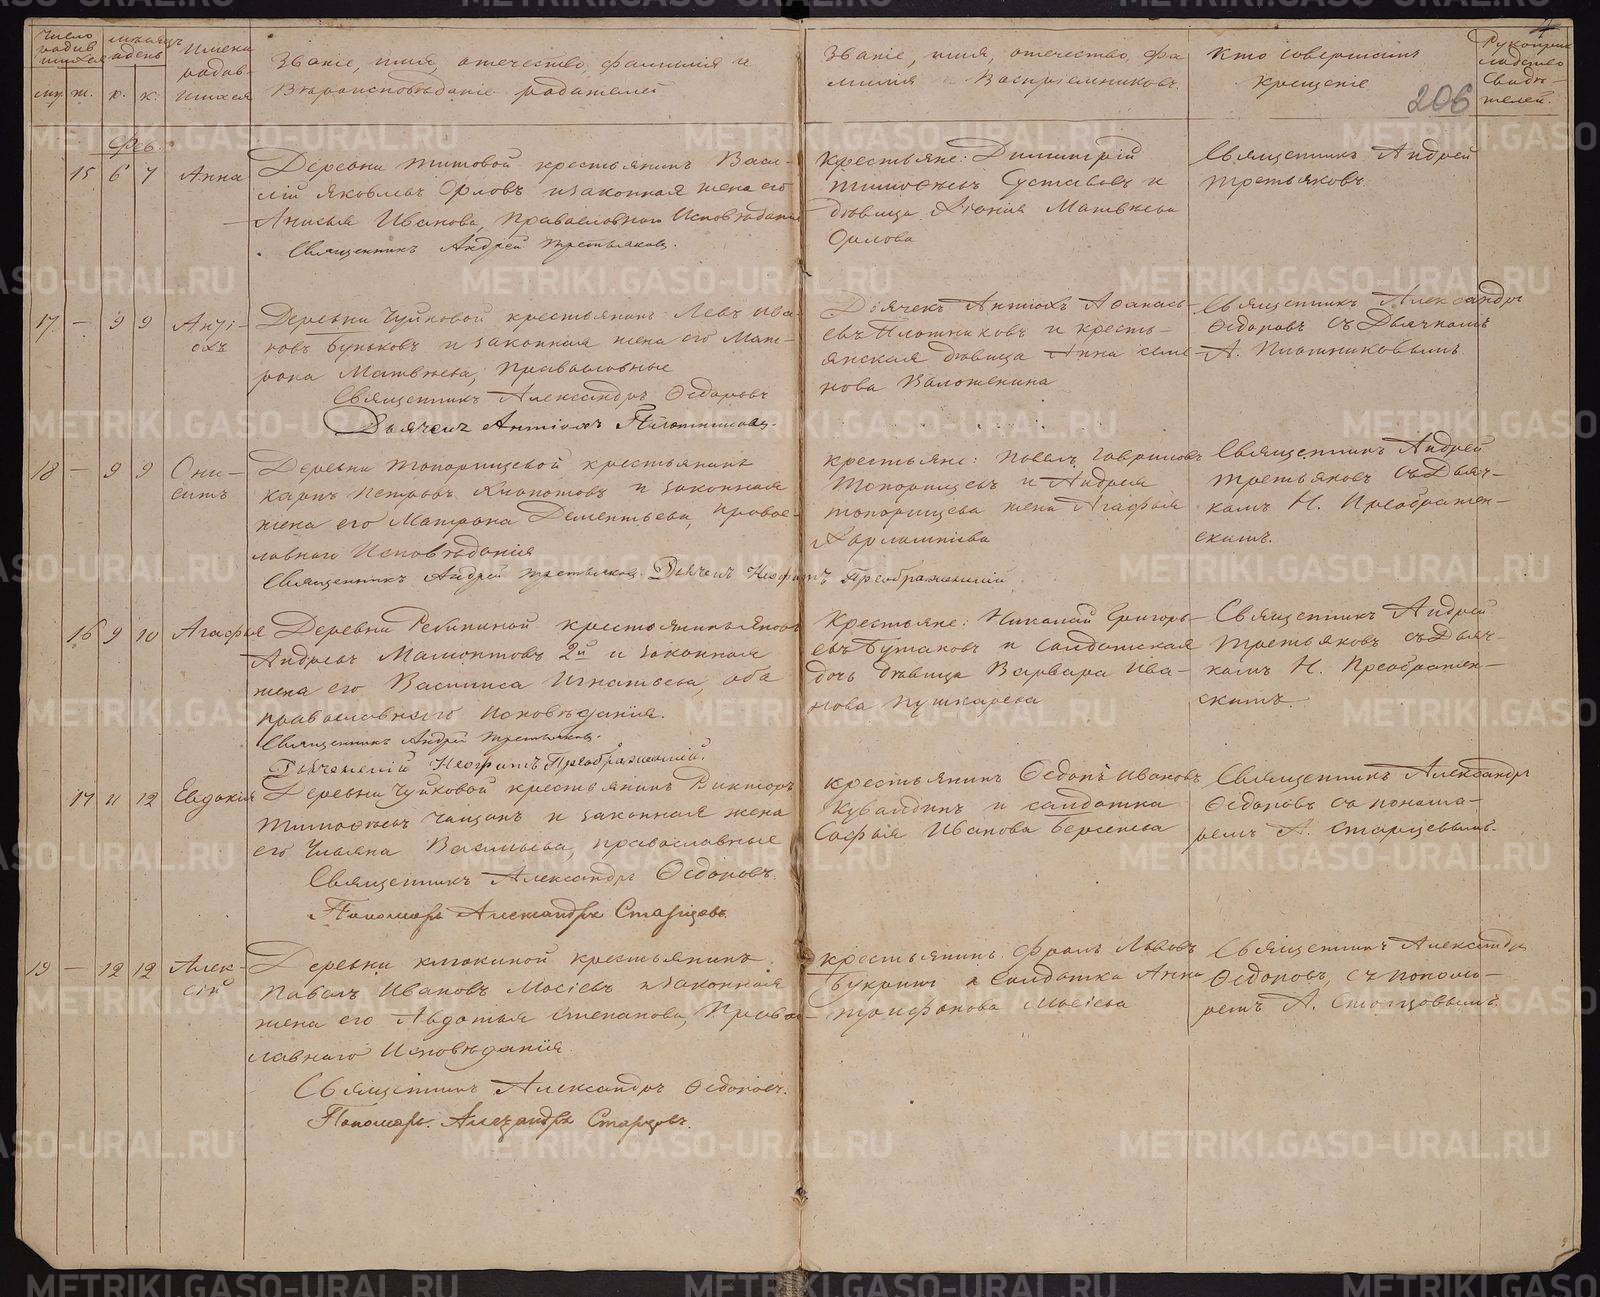 Число родившихся
мѣсяцъ и день
Имена родившихся
Званіе, имя, отечество, фамилія и
Вѣроисповѣданіе родителей
Званіе, имя, отечество, фа-
милія Воспріемниковъ.
Кто совершалъ
крещеніе
Рукоприкладство
Свидѣ-
телей.
206
му. ж. р. к.
Фев.
15 6 7 Анна
Деревни Титовой крестьянинъ Васи-
лій Яковлевъ Орловъ и законная жена его
Анисья Иванова, Православнаго Исповѣданія
Священникъ Андрей Третьяковъ.
Крестьяне: Димитрій
Тимоѳеевъ Суставовъ и
дѣвица Хіонія Матвѣева
Орлова
Священникъ Андрей
Третьяковъ
17. — 9 9 Анті-
охъ
Деревни Чуйковой крестьянинъ Левъ Ива-
новъ Буньковъ и законная жена его Мат-
рона Матвѣева, Православные
Священникъ Александръ Ѳедоровъ
Дьячекъ Антіохъ Плотниковъ.
Дьячекъ Антіохъ Аѳанась-
евъ Плотниковъ и кресть-
янская дѣвица Анна Семе-
нова Валошенина
Священникъ Александръ
Ѳедоровъ съ Дьячкомъ
А. Плотниковымъ
18 — 9 9 Они-
симъ
Деревни Топорищевой крестьянинъ
Карпъ Петровъ Клопотовъ и законная
жена его Матрона Дементьева, Правос-
лавнаго Исповѣданія
Священникъ Андрей Третьяковъ. Дьячекъ Неофитъ Преображенскій
Крестьяне: Павелъ Гавриловъ
Топорищевъ и Андрея
Топорищева жена Агафья
Харлампіева
Священникъ Андрей
Третьяковъ съ Дьяч-
комъ Н. Преображен-
скимъ.
16 9 10 Агафья
Деревни Речкиной крестьянинъ Яковъ
Андреевъ Мамонтовъ 2й и законная
жена его Василиса Игнатьева, оба
православнаго исповѣданія.
Священникъ Андрей Третьяковъ.
Неофитъ Преображенскій.
Крестьяне: Николай Григорь-
евъ Бутаковъ и Солдатская
дочь дѣвица Варвара Ива-
нова Пушкарева
Священникъ Андрей
Третьяковъ съ Дьяч-
комъ Н. Преображен-
скимъ.
17 11 12 Евдокія
Деревни Чуйковой крестьянинъ Викторъ
Тимоѳеевъ Чащинъ и законная жена
его Ульяна Васильева, православные
Священникъ Александръ Ѳедоровъ.
Пономарь Александръ Старцовъ.
крестьянинъ Ѳедотъ Ивановъ
Кувалдинъ и солдатка
Софья Иванова Берсенева
Священникъ Александръ
Ѳедоровъ съ понома-
ремъ А. Старцевымъ.
19 — 12 12 Алек-
сій
Деревни Клюкиной крестьянинъ
Павелъ Ивановъ Мосіевъ и законная
жена его Авдотья Степанова, Правос-
лавнаго Исповѣданія
Священникъ Александръ Ѳедоровъ.
Пономарь. Александръ Старцовъ.
крестьянинъ Фролъ Львовъ
Букринъ и Солдатка Анна
Трифонова Мосіева
Священникъ Александръ
Ѳедоровъ, съ понома-
ремъ А. Старцовымъ
METRIKI.GASO-URAL.RU